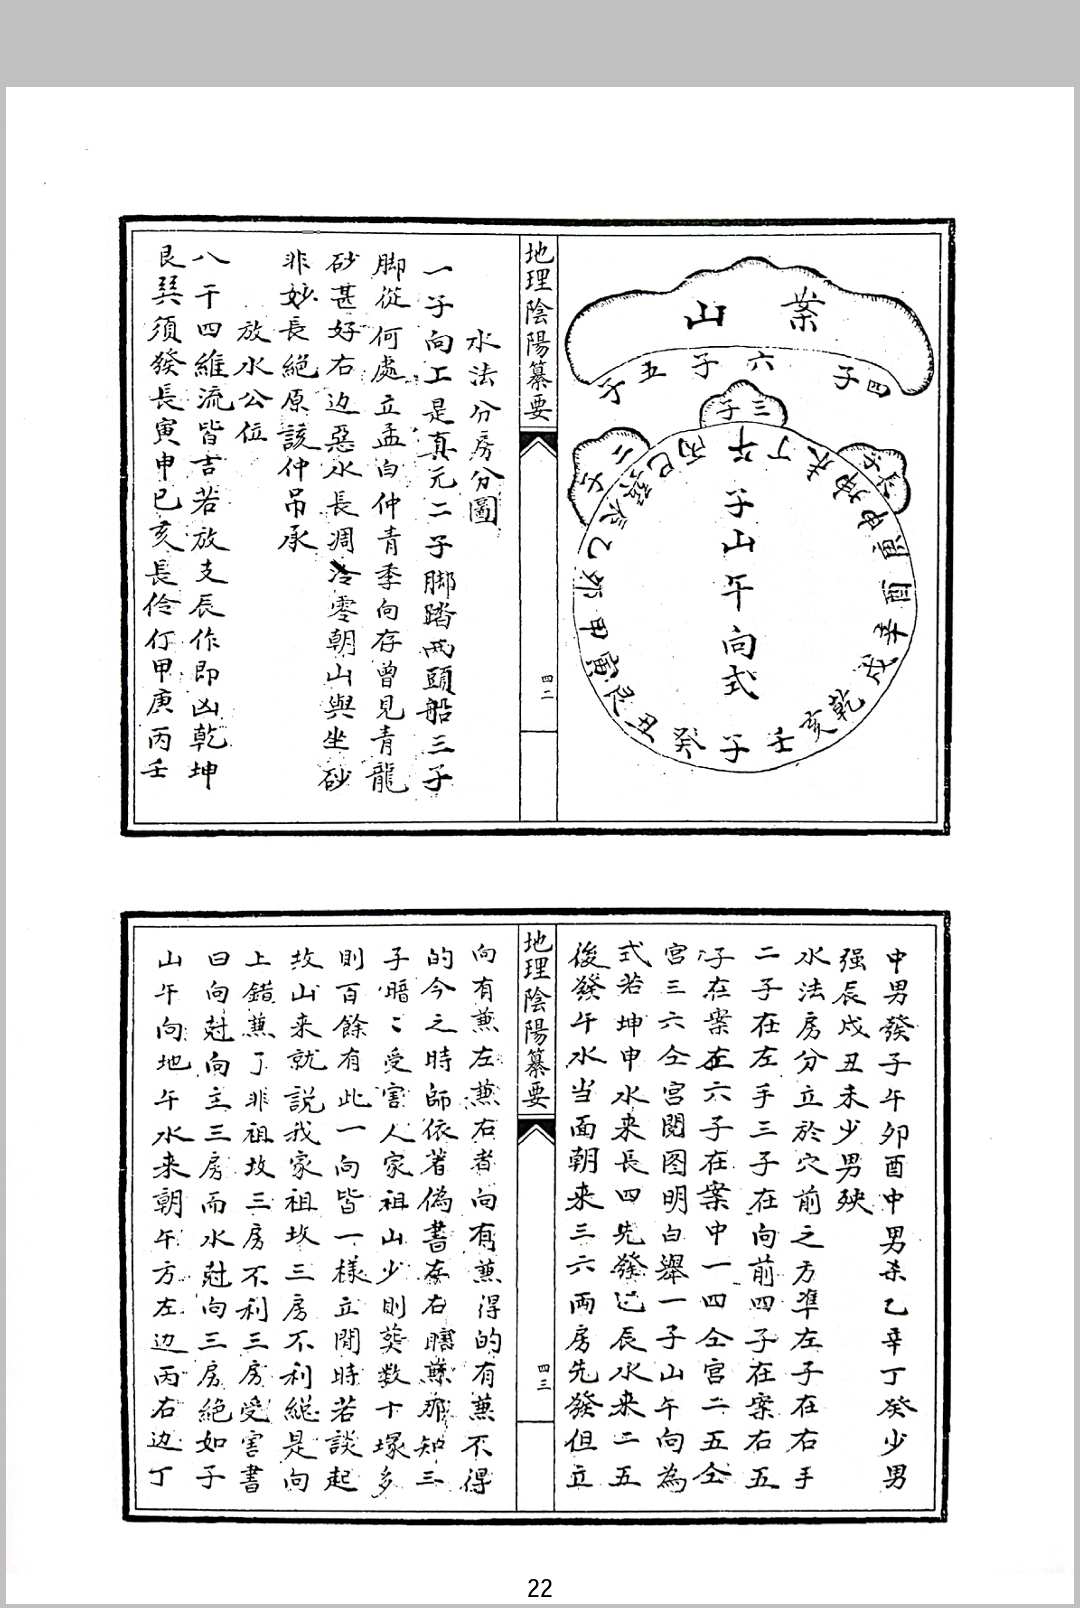 案山
四子
六子
五子
三子
二子
子山午向式
午丁未坤申庚酉辛戌乾亥壬子癸丑艮寅甲卯乙辰巽巳丙
地理陰陽纂要
四二
水法分房分圖
一子向工是真元二子脚踏両頭船三子
脚從何處立孟白仲青季向存曾見青龍
砂甚好右边惡水長凋冷零朝山與坐砂
非妙長絕原該仲吊承
放水公位
八干四維流皆吉若放支辰作即凶乾坤
艮巽須發長寅申巳亥長伶仃甲庚丙壬
中男發子午卯酉中男杀乙辛丁癸少男
强辰戍丑未少男殃
水法房分立於穴前之方準左子在右手
二子在左手三子在向前四子在案右五
子在案左六子在案中一四仝宫二五仝
宫三六仝宮閱图明白舉一子山午向為
式若坤申水来長四先發巳辰水来二五
後發午水当面朝来三六両房先發但立
地理陰陽纂要
四三
向有蕉左蕉右者向有蕉得的有蕉不得
的今之時師依著偽書在右瞎蕉那知三
子暗〻受害人家祖山少則葬数十塚多
則百餘有此一向皆一樣立閒時若談起
坟山来就説我家祖坟三房不利総是向
上錯蕉了非祖坟三房不利三房受害書
曰向尅向主三房而水尅向三房絕如子
山午向地午水来朝午方左边丙右边丁
22